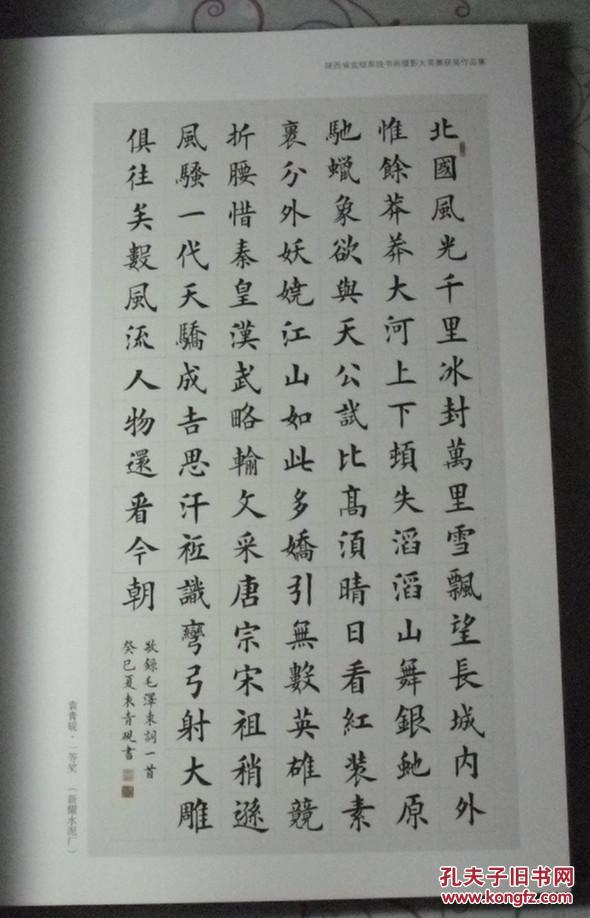 陕西省监狱系统书画摄影大奖赛获奖作品集
北國風光千里冰封萬里雪飄望長城内外
惟餘莽莽大河上下頓失滔滔山舞銀虵原
馳蠟象欲與天公試比髙須晴日看紅裝素
裹分外妖娆江山如此多嬌引無數英雄競
折腰惜秦皇漢武略輸文采唐宗宋祖稍遜
風騷一代天驕成吉思汗祗識彎弓射大雕
俱往矣數風流人物還看今朝
敬錄毛澤東詞一首
癸巳夏袁青硯書
袁青砚·二等奖 （新耀水泥厂）
孔夫子旧书网
www.kongfz.com